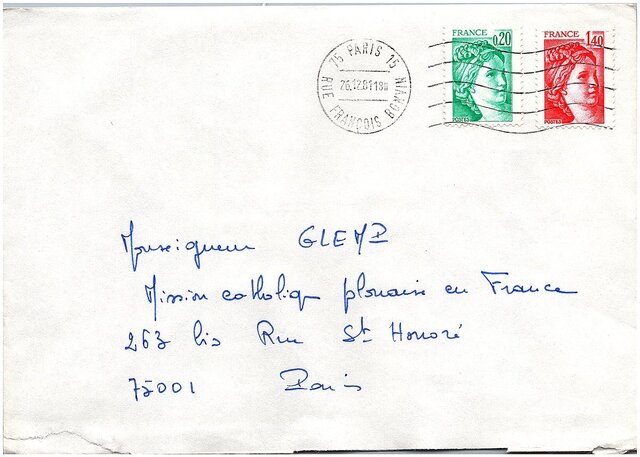 75 PARIS 15
26.12.81 18H
RUE FRANÇOIS BONVIN
FRANCE 0,20
POSTES
FRANCE 1,40
POSTES
Monseigneur GLEMP
Mission catholique polonaise en France
263 bis Rue St Honoré
75001 Paris